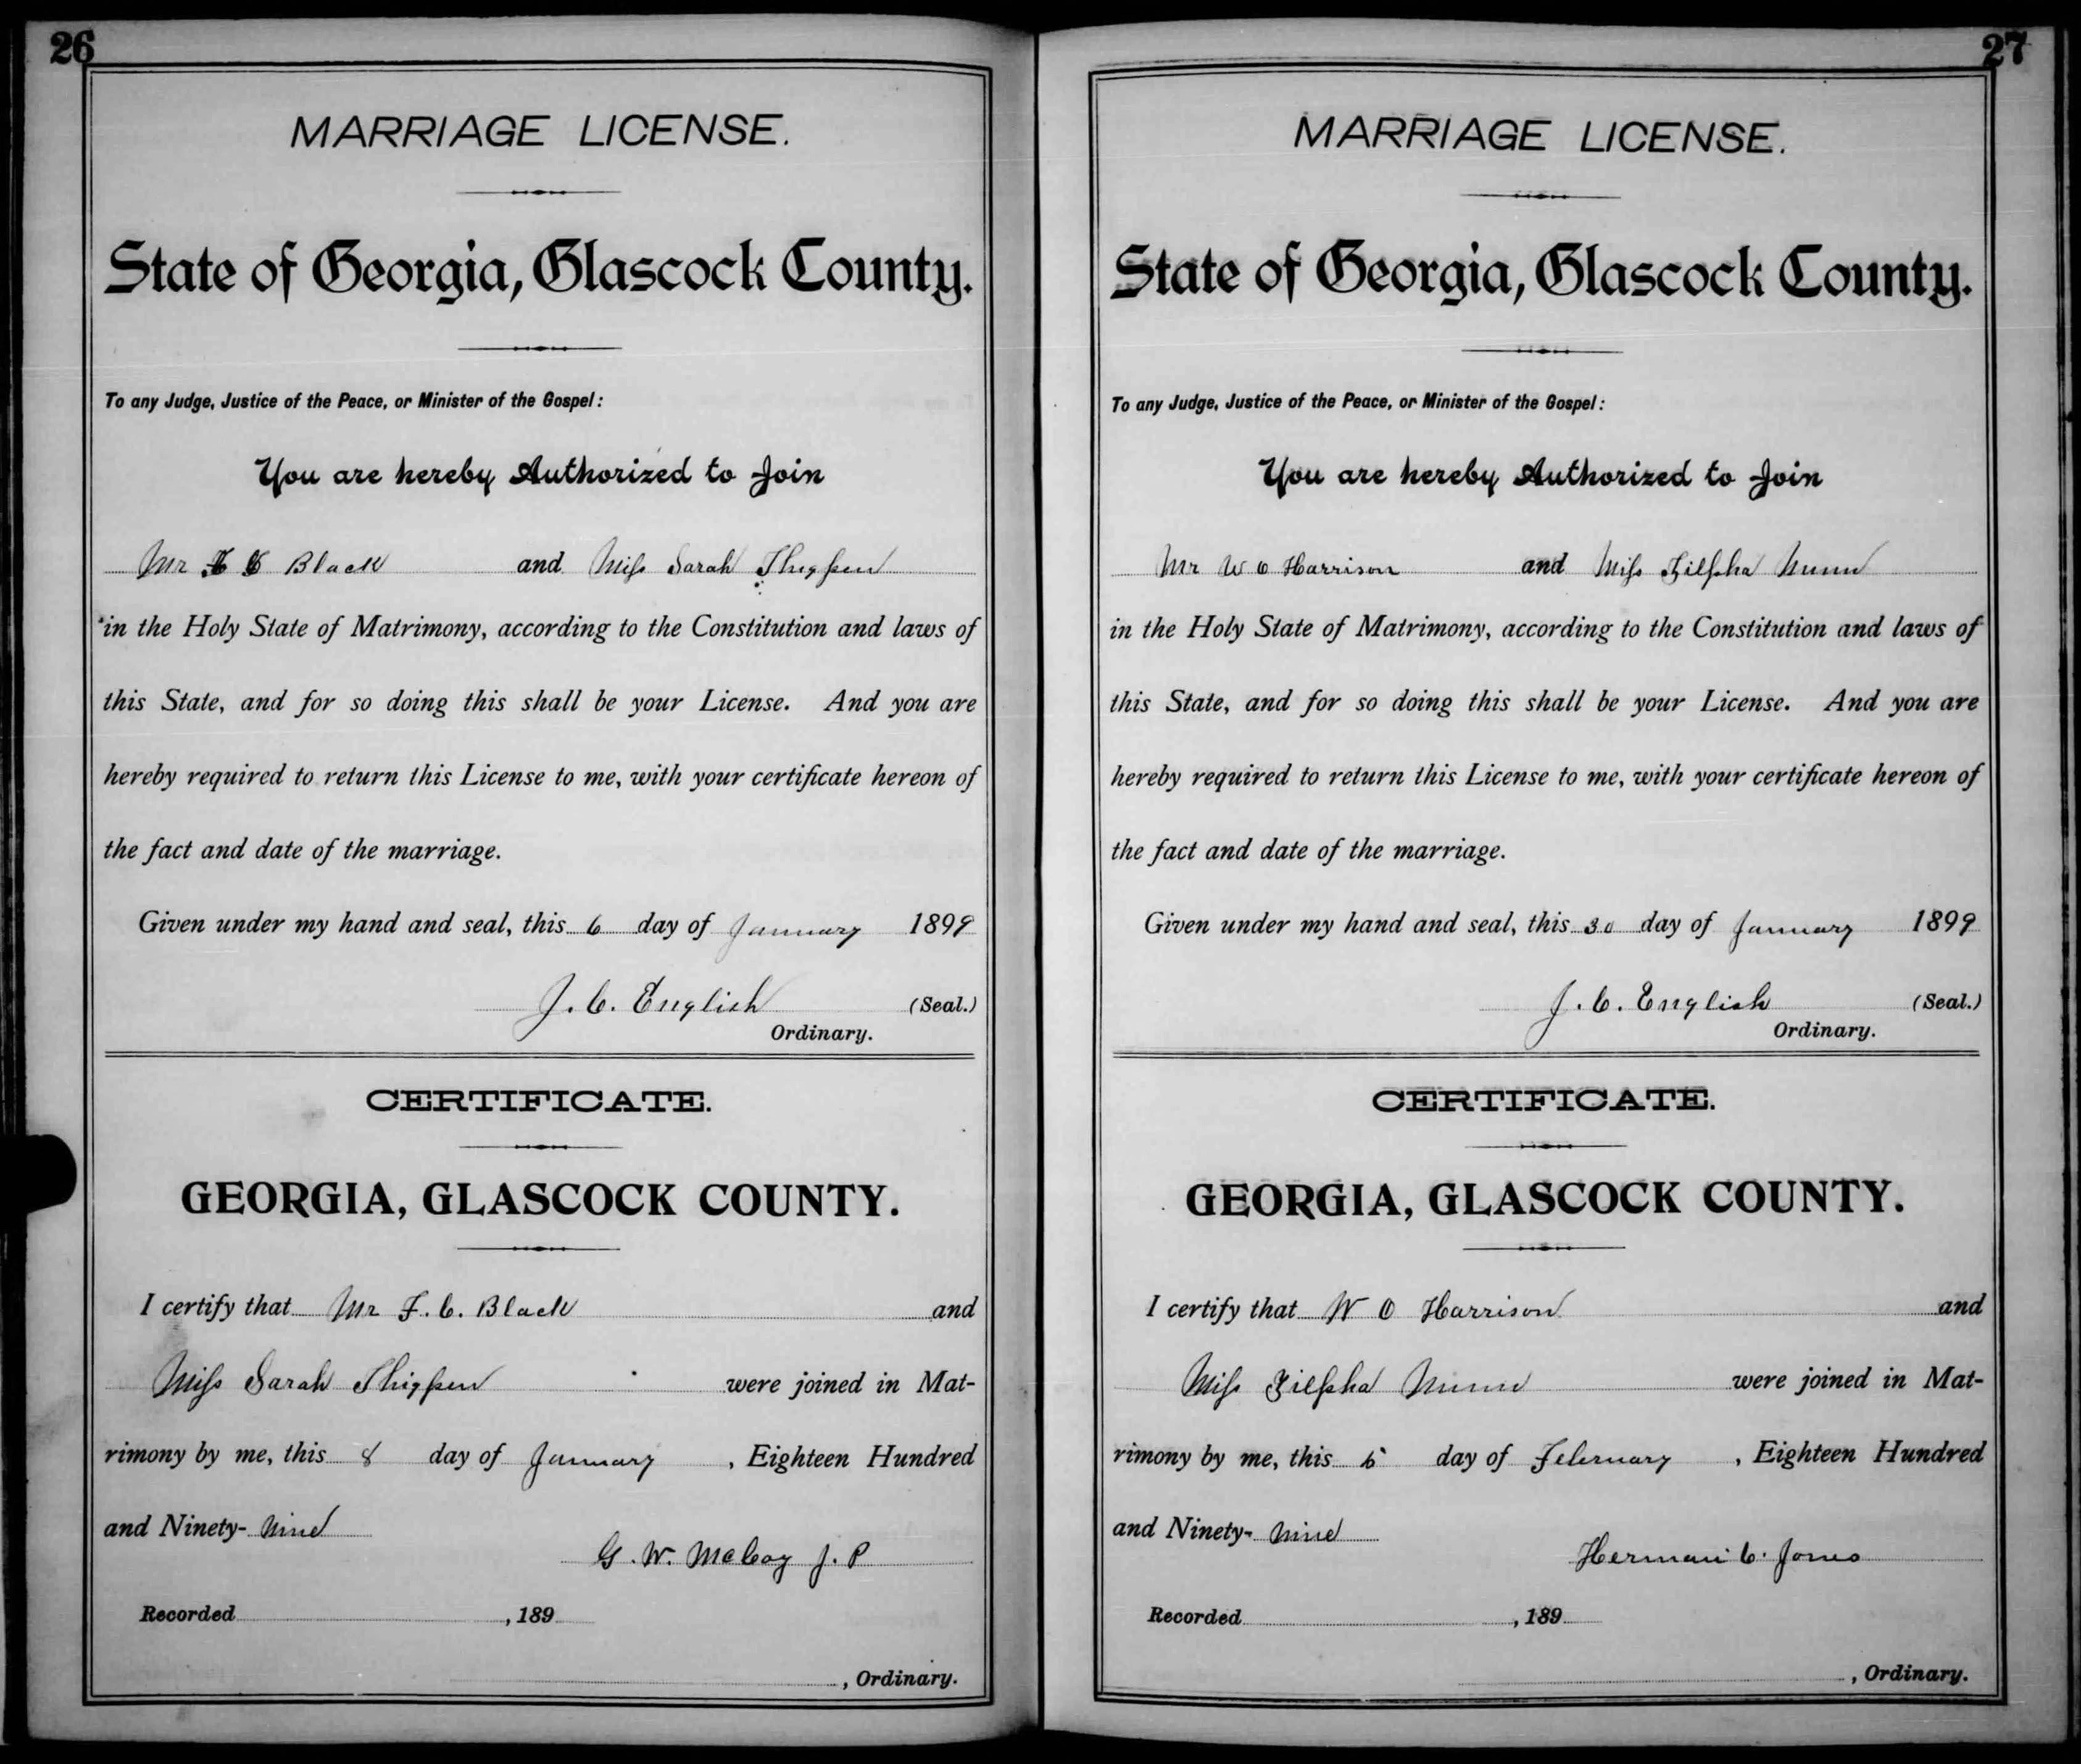 26
MARRIAGE LICENSE.
State of Georgia, Glascock County.
To any Judge, Justice of the Peace, or Minister of the Gospel:
You are hereby Authorized to Join
Mr F C Black and Miss Sarah Thigpen
in the Holy State of Matrimony, according to the Constitution and laws of
this State, and for so doing this shall be your License. And you are
hereby required to return this License to me, with your certificate hereon of
the fact and date of the marriage.
Given under my hand and seal, this 6 day of January 1899
J. C. English (Seal.)
Ordinary.
CERTIFICATE.
GEORGIA, GLASCOCK COUNTY.
I certify that Mr F. C. Black and
Miss Sarah Thigpen were joined in Mat-
rimony by me, this 8 day of January, Eighteen Hundred
and Ninety-Nine
G. W. McCoy J. P
Recorded , 189
, Ordinary.
27
MARRIAGE LICENSE.
State of Georgia, Glascock County.
To any Judge, Justice of the Peace, or Minister of the Gospel:
You are hereby Authorized to Join
Mr W O Harrison and Miss Zilpha Nunn
in the Holy State of Matrimony, according to the Constitution and laws of
this State, and for so doing this shall be your License. And you are
hereby required to return this License to me, with your certificate hereon of
the fact and date of the marriage.
Given under my hand and seal, this 30 day of January 1899
J. C. English (Seal.)
Ordinary.
CERTIFICATE.
GEORGIA, GLASCOCK COUNTY.
I certify that W O Harrison and
Miss Zilpha Nunn were joined in Mat-
rimony by me, this day of February, Eighteen Hundred
and Ninety-Nine
Herman C. Jones
Recorded , 189
, Ordinary.